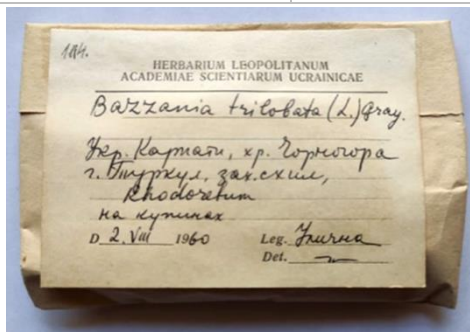 184.
HERBARIUM LEOPOLITANUM
ACADEMIAE SCIENTIARUM UCRAINICAE
Bazzania trilobata (L.) Gray.
Укр. Карпати, хр. Чорногора
г. Туркул, зах. схил,
Rhodoretum
на купинах
D 2. VIII 1960 Leg. Улична
Det. 〃